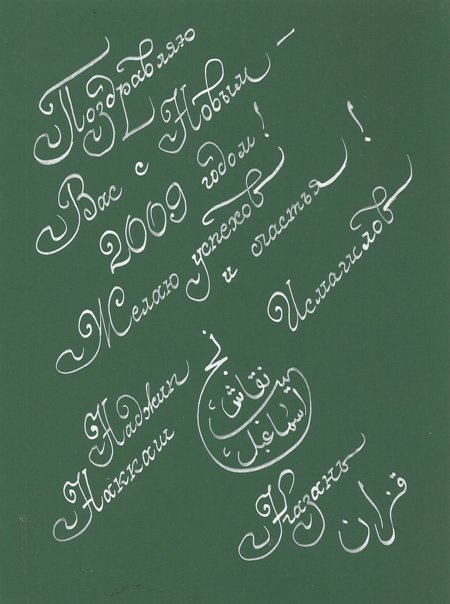 Поздравляю
Вас с Новым
2009 годом!
Желаю успехов
и счастья!
Исмагилов
Наджип
Наккаш
نجيب
نقاش
اسماعيل
Казань
قزان